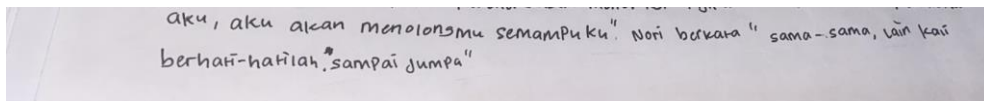 aku, aku akan menolongmu semampuku". Nori berkata " sama-sama, lain kali
berhati-hatilah. sampai jumpa"